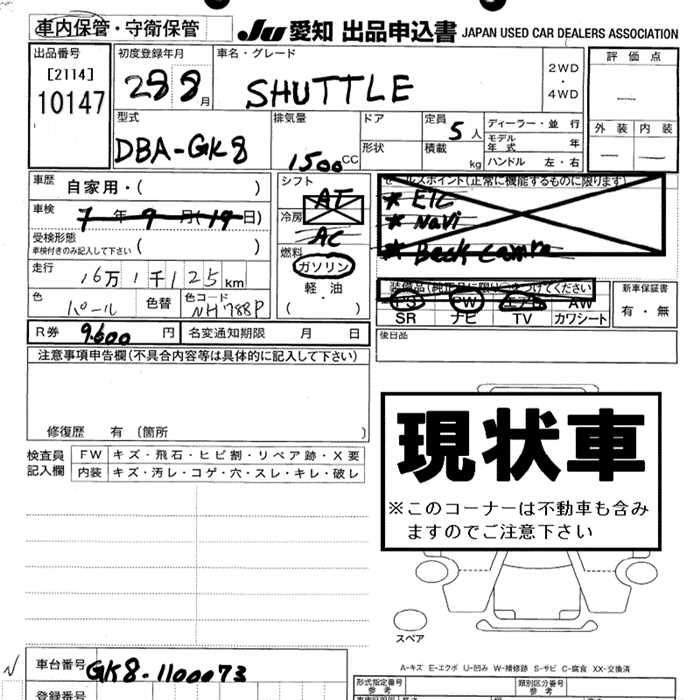 車内保管・守衛保管
JU 愛知 出品申込書 JAPAN USED CAR DEALERS ASSOCIATION
出品番号
[2114]
10147
初度登録年月
28 8月
車名・グレード
SHUTTLE
2WD
・
4WD
評価点
—
外装 内装
— —
型式
DBA-GK8
排気量
1500CC
ドア
形状
定員
5人
積載
kg
ディーラー・並行
モデル年式 年
ハンドル 左・右
車歴 自家用・( )
車検 7年9月(19日)
受検形態
車検付きのみ記入して下さい ( )
走行 16万1千125km
色 パール 色替 色コード NH788P
R券 9.600円 名変通知期限 月 日
シフト
AT
冷房
AC
燃料
ガソリン
・
軽・油
( )
セールスポイント(正常に機能するものに限ります)
* ETC
* Navi
* Back camra
装備品(純正品に限り○をつけてください
PS PW エアB AW
SR ナビ TV カワシート
新車保証書
有・無
後日品
注意事項申告欄(不具合内容等は具体的に記入して下さい)
修復歴 有 〔箇所 〕
検査員記入欄
FW キズ・飛石・ヒビ割・リペア跡・X要
内装 キズ・汚レ・コゲ・穴・スレ・キレ・破レ
現状車
※このコーナーは不動車も含み
ますのでご注意下さい
スペア
A-キズ E-エクボ U-凹み W-補修跡 S-サビ C-腐食 XX-交換済
車台番号 GK8-1100073
登録番号
形式指定番号
参考
類別区分番号
参考